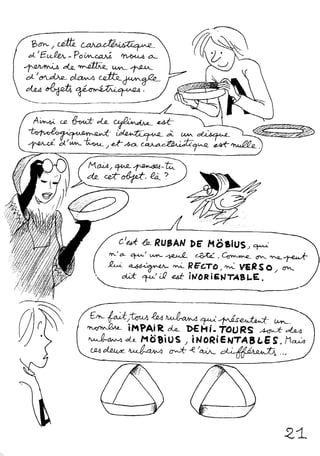 Bon, cette caractéristique
d'Euler-Poincaré nous a
permis de mettre un peu
d'ordre dans cette jungle
des objets géométriques.
Ainsi ce bout de cylindre est
topologiquement identique à un disque
percé d'un trou, et sa caractéristique est nulle.
Mais, que penses-tu
de cet objet-là ?
C'est le RUBAN DE MÖBIUS, qui
n'a qu'un seul côté. Comme on ne peut
lui assigner ni RECTO, ni VERSO, on
dit qu'il est INORIENTABLE.
En fait, tous les rubans qui présentent un
nombre IMPAIR de DEMI-TOURS sont des
rubans de MÖBIUS, INORIENTABLES. Mais
ces deux rubans ont l'air différents...
21